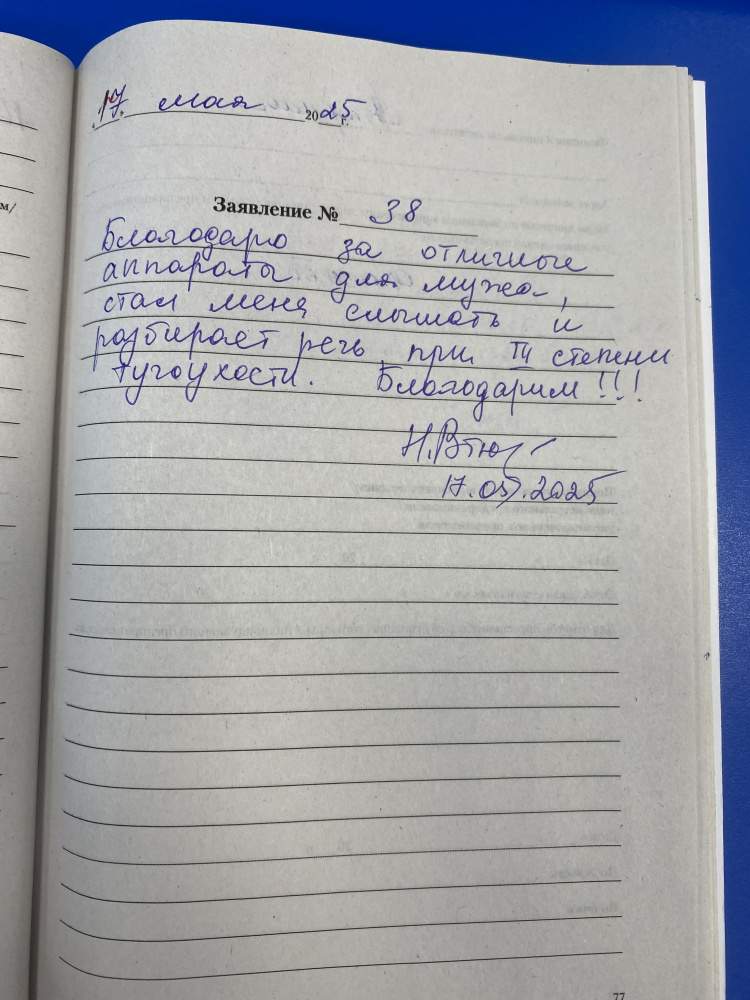 17 мая 2025 г.
Заявление № 38
Благодарю за отличные
аппараты для мужа,
стал меня слышать и
разбирает речь при степени
тугоухости. Благодарим!!!
17.05.2025
77